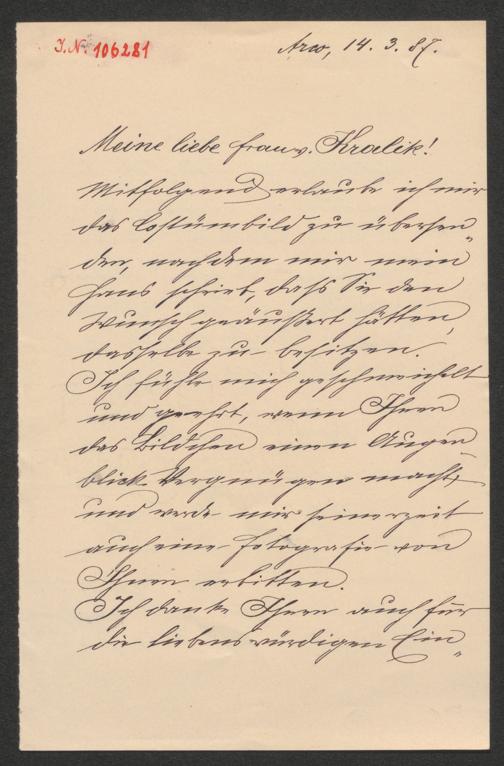 I.N. 106281
Arco, 14. 3. 87.
Meine liebe Frau v. Kralik!
Mitfolgend erlaube ich mir
das Costümbild zu übersen„
den, nachdem mir mein
Hans schrieb, dass Sie den
Wunsch geäußert hätten,
dasselbe zu besitzen.
Ich fühle mich geschmeichelt
und geehrt, wenn Ihnen
das Bildchen einen Augen
blick Vergnügen macht,
und werde mir seinerzeit
auch eine Fotografie von
Ihnen erbitten.
Ich danke Ihnen auch für
die liebenswürdigen Ein„